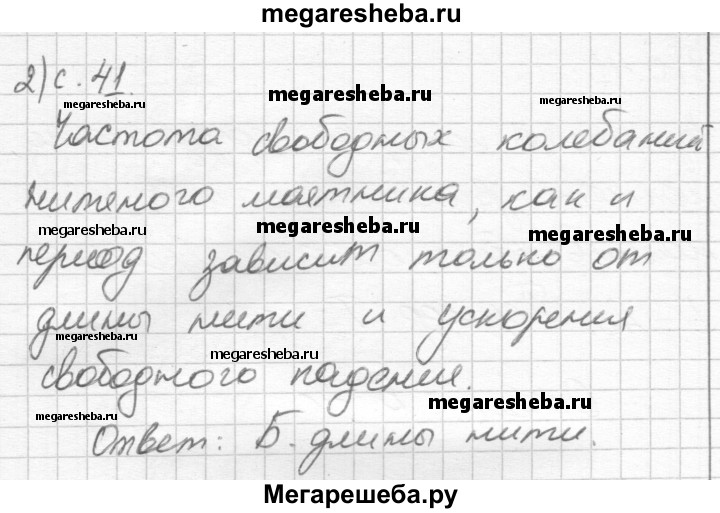 megaresheba.ru
2) с. 41.
megaresheba.ru megaresheba.ru megaresheba.ru
Частота свободных колебаний
нитяного маятника, как и
megaresheba.ru megaresheba.ru
период зависит только от
длины нити и ускорения
megaresheba.ru
свободного падения.
megaresheba.ru megaresheba.ru
Ответ: Б. длины нити.
Мегарешеба.ру